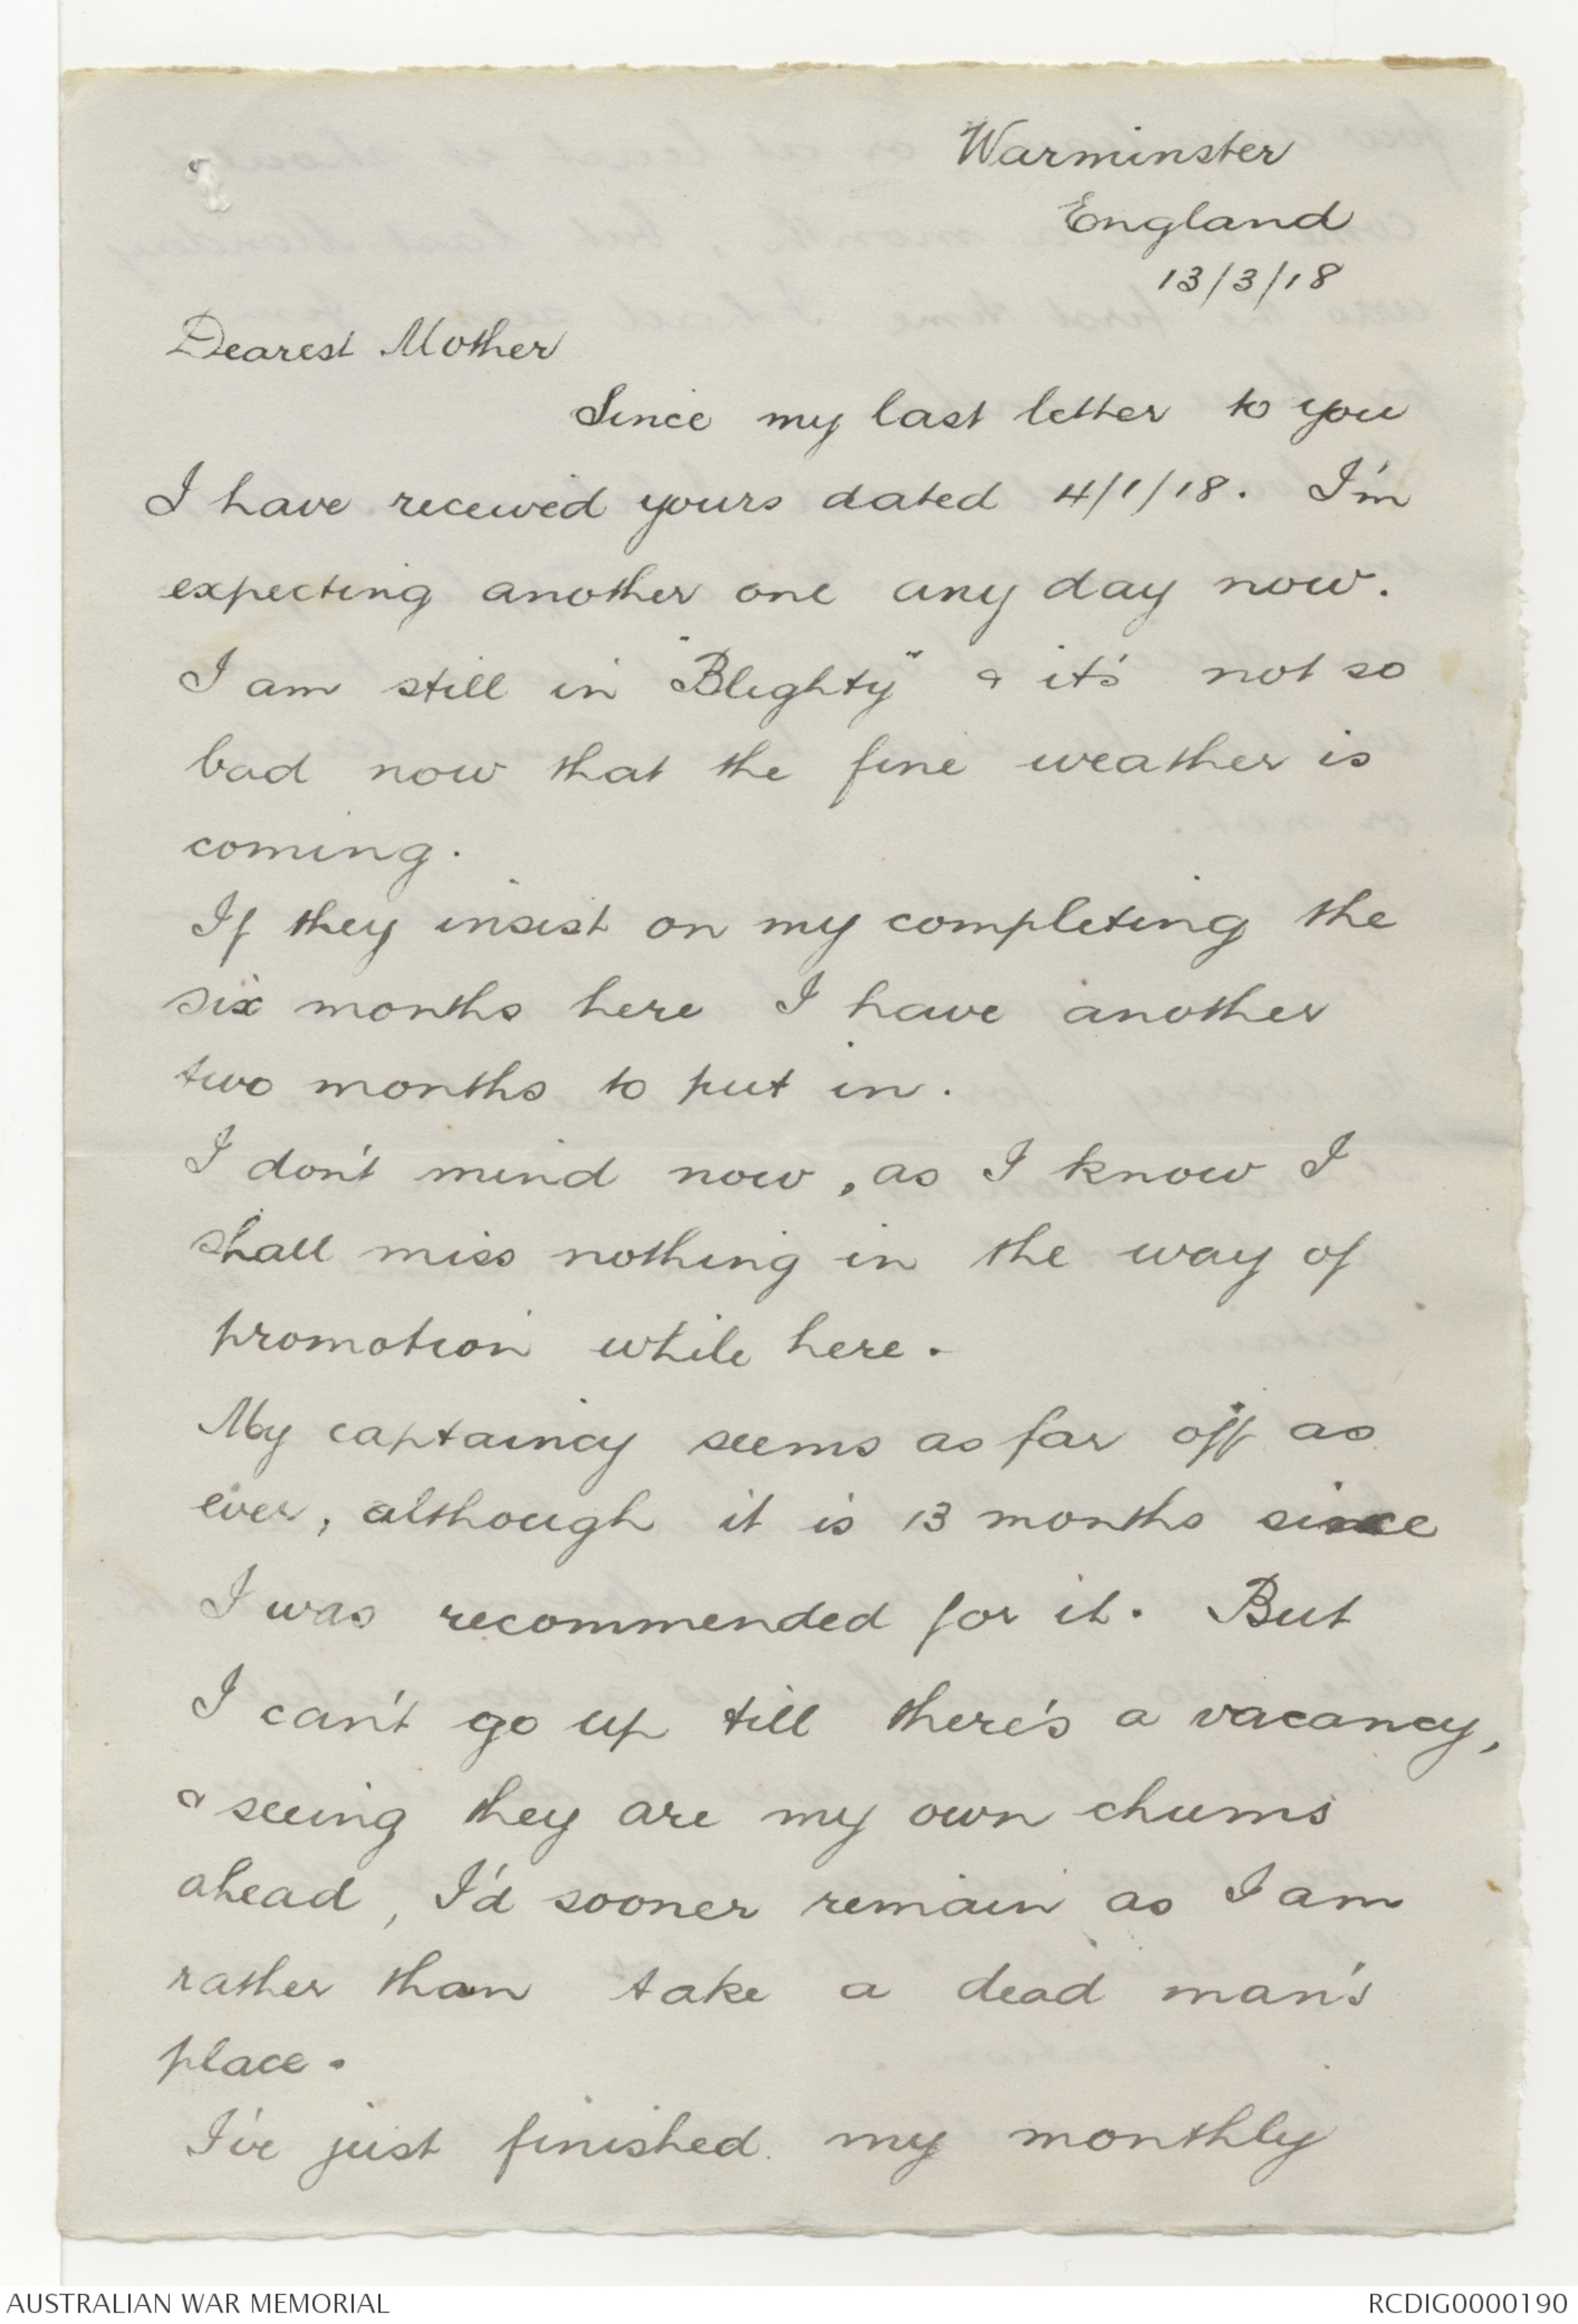 Warminster
England
13/3/18
Dearest Mother
Since my last letter to you
I have received yours dated 4/1/18. I'm
expecting another one any day now.
I am still in "Blighty" & it's not so
bad now that the fine weather is
coming.
If they insist on my completing the
six months here I have another
two months to put in.
I don't mind now, as I know I
shall miss nothing in the way of
promotion while here.
My captaincy seems as far off as
ever, although it is 13 months since
I was recommended for it. But
I can't go up till there's a vacancy,
& seeing they are my own chums
ahead, I'd sooner remain as I am
rather than take a dead man's
place.
I've just finished my monthly
AUSTRALIAN WAR MEMORIAL
RCDIG0000190